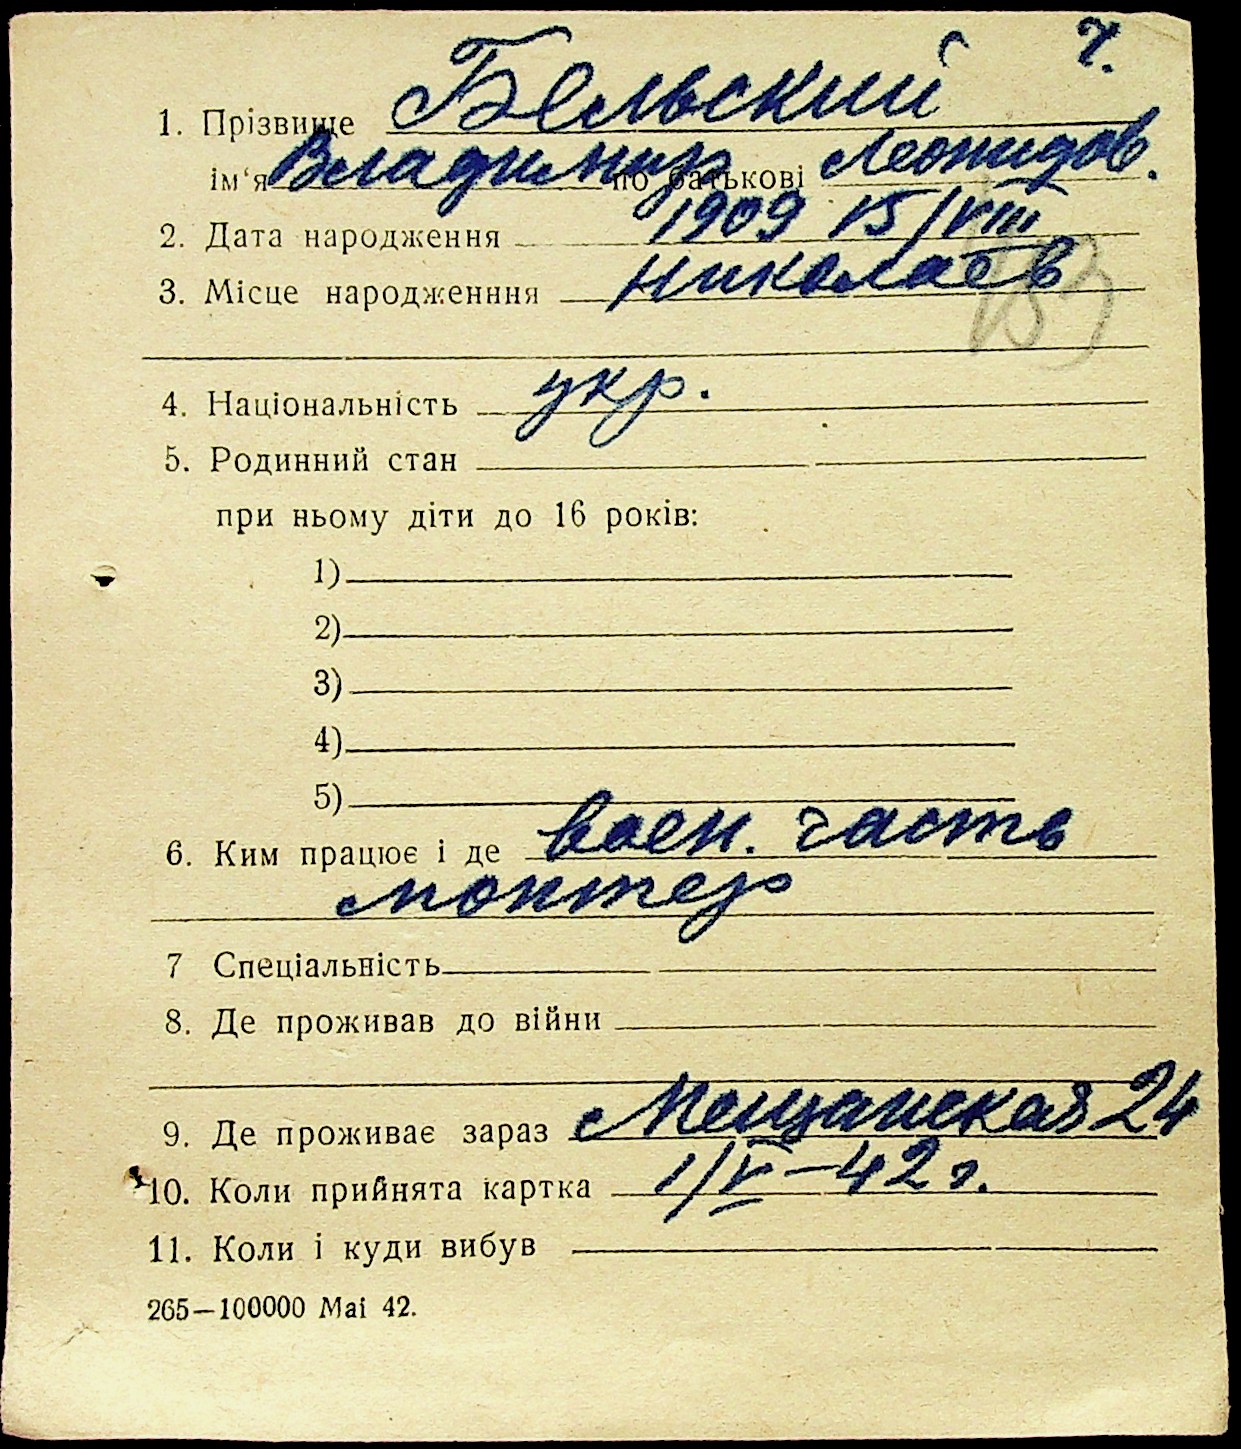 ч.
1. Прізвище Бельский
ім‘я Владимир по батькові Леонидов.
2. Дата народження 1909 15/VIII
3. Місце народженння Николаев
4. Національність укр.
5. Родинний стан
при ньому діти до 16 років:
1)
2)
3)
4)
5)
6. Ким працює і де воен. часть
монтер
7 Спеціальність
8. Де проживав до війни
9. Де проживає зараз Мещанская 24
10. Коли прийнята картка 1/V–42 г.
11. Коли і куди вибув
265—100000 Маі 42.